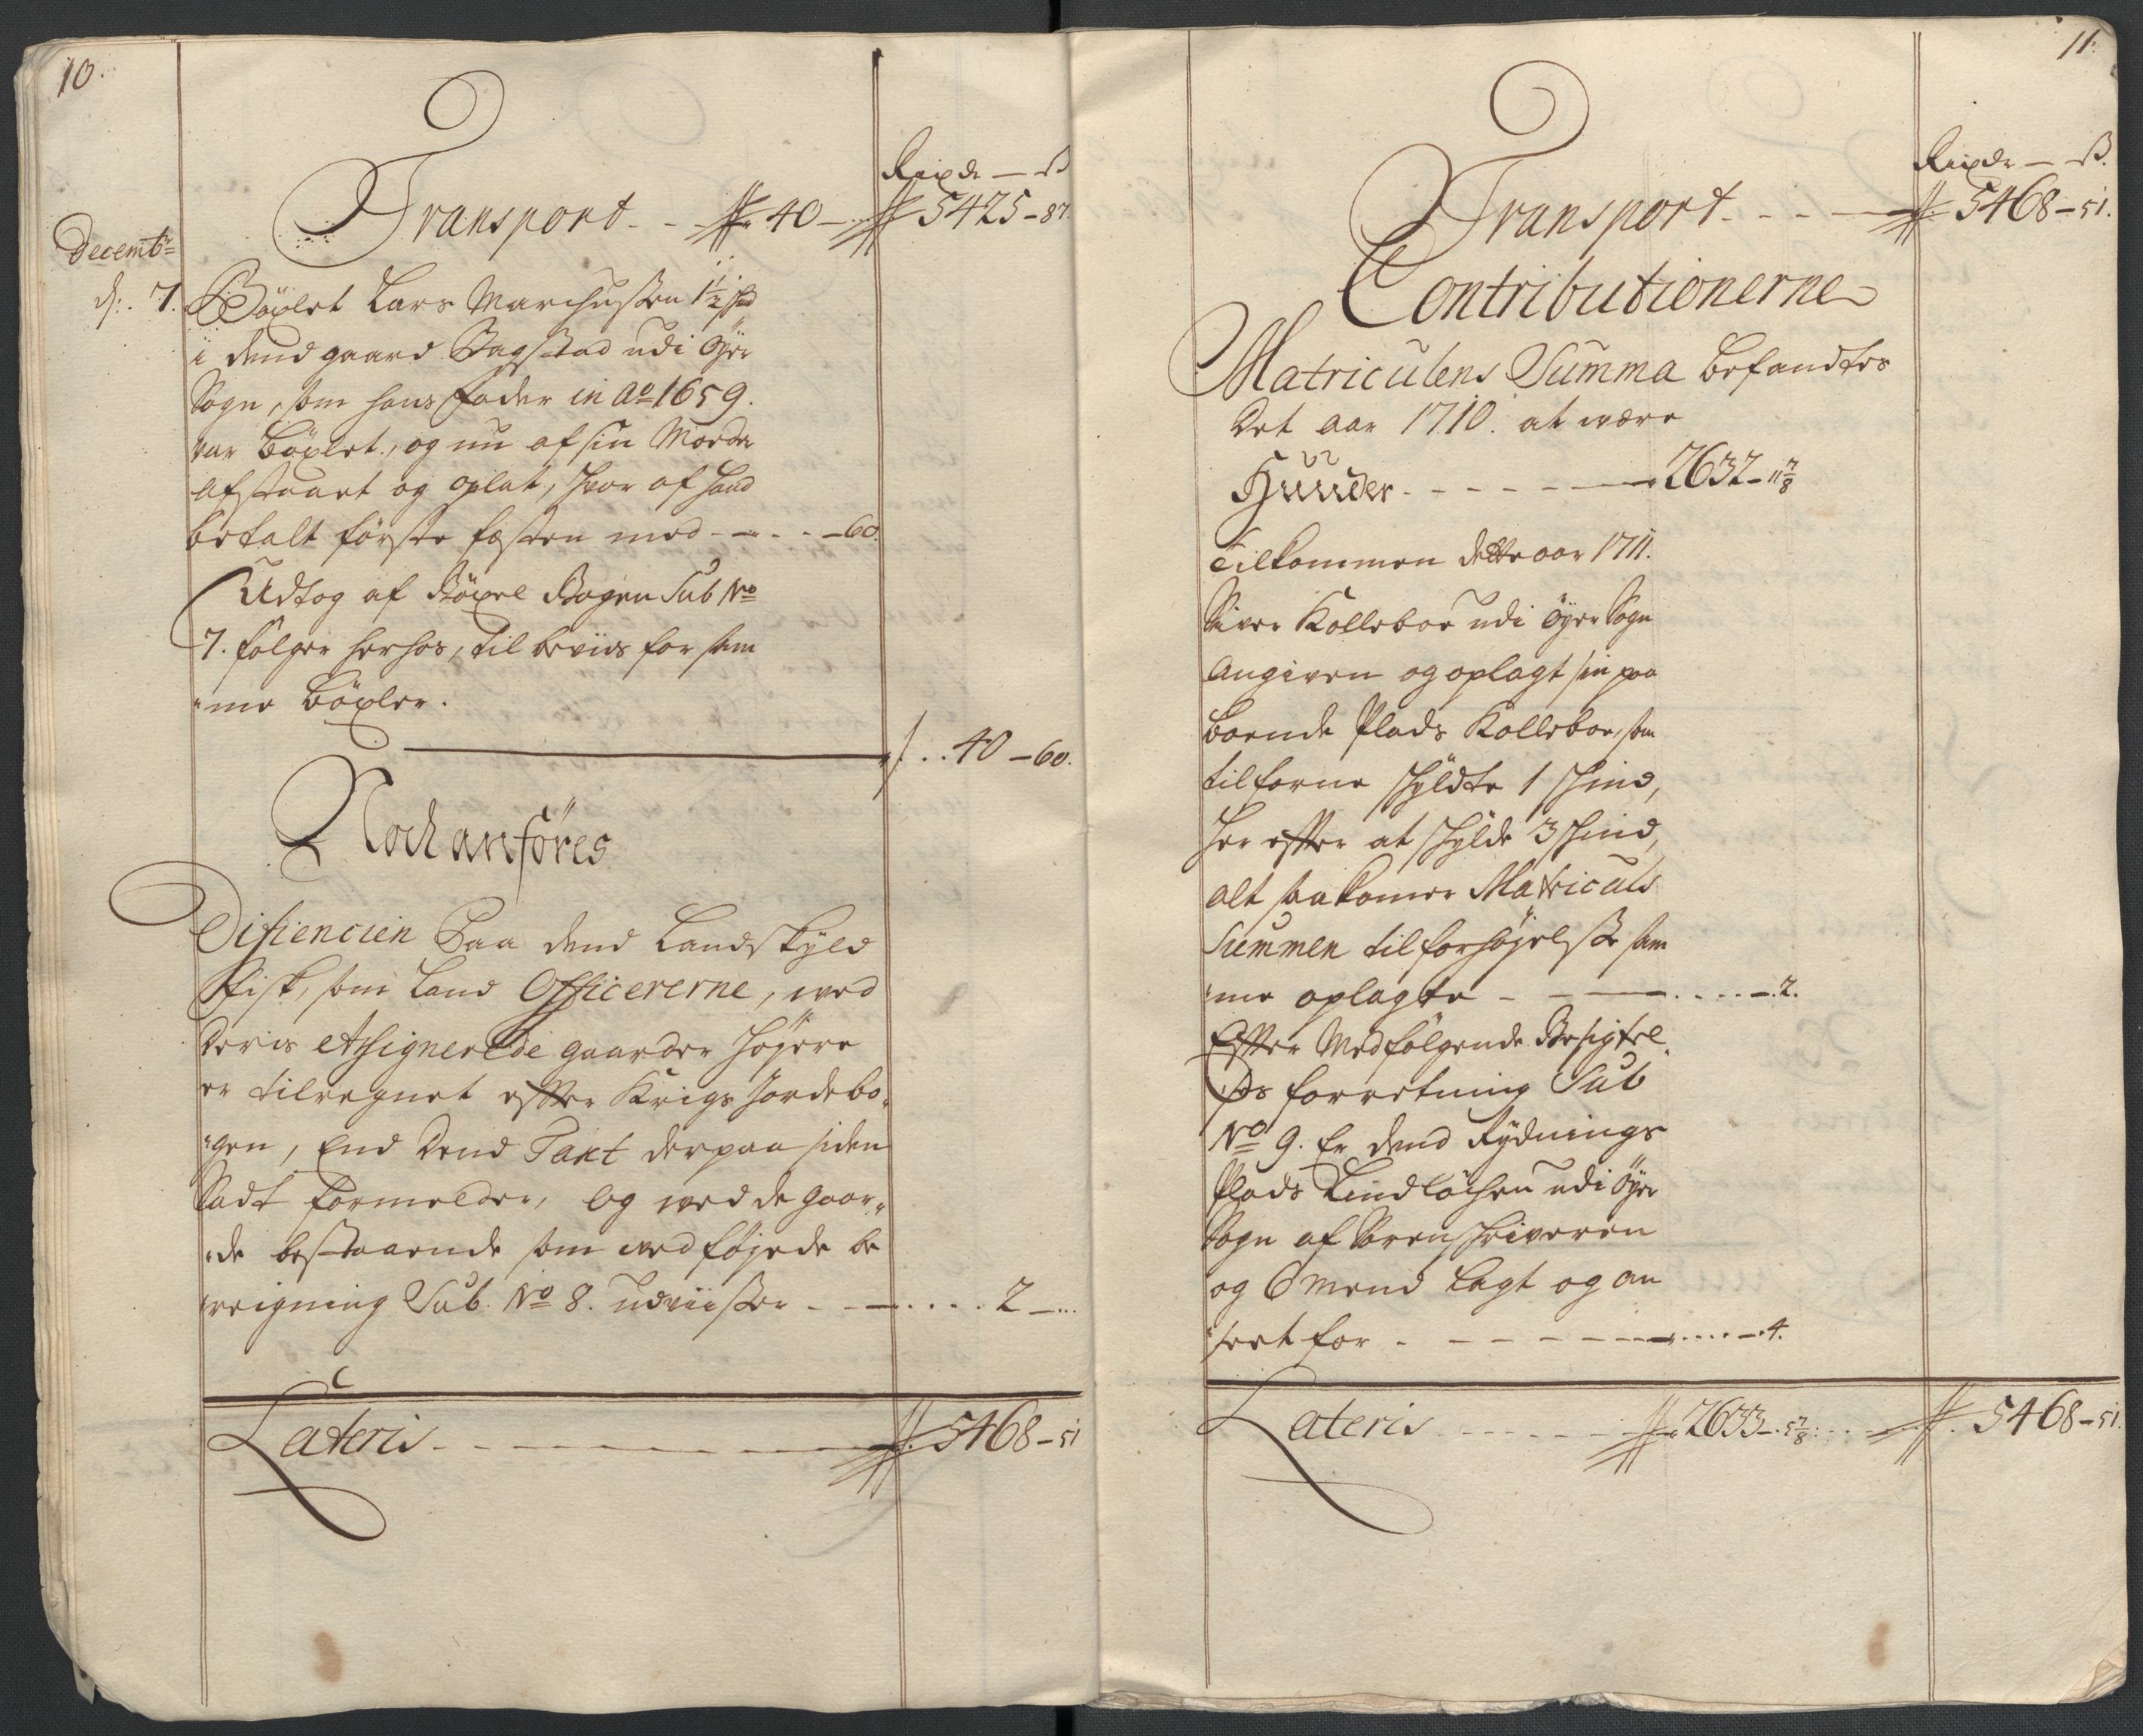 10.
Rixdr — ß
Transport - - 40 - 5425 - 87.
Decembr
d: 7. Böxlet Lars Marchussen 1½ skd
i dend gaard Bagstad udi Öyer
Sogn, som hans fader in Ao 1659.
var böxlet, og nu af sin Moder
afstaaet og oplat, hvor af hand
betalt förste festen med - - - 60.
Udtog af Böxel Bogen Sub No
7. fölger herhos, til beviis for sam
me böxler.
40 - 60.
Noch anföres
Differencien Paa dend Landskyld
fisk, som Land Officererne, ved
deris Assignerede gaarder höyere
er tilregnet efter Krigs Jordebo-
gen, End dend Taxt derpaa siden
Sadt formelder, og ved de gaar-
de bestaaende som vedföyede be
reigning Sub No 8. udviisser - - - 2 - ...
Lateris - - - 5468 - 51
11.
Rixdr — ß.
Transport - - - 5468 - 51.
Contributionerne
Matriculens Summa befandtes
det aar 1710. at vere
Huuder - - - 2632 - 11 7/8
Tilkommen dette aar 1711.
Siver Kolleboe udi Öyer Sogn
angiven og oplagt sin paa
boende Plads Kolleboe, som
tilforne skyldte 1 skind,
her efter at skylde 3 skind,
alt saa komer Matriculs
Summen til forhöyelse sam
me oplagte - - - 2.
Efter Medfölgende Besigtel
ses forretning Sub
No 9. Er dend Rydnings
Plads Lindlöchen udi Öyer
Sogn af Sorenskriveren
og 6 mend lagt og an
seet for - - - 4.
Lateris - - - 2633 - 5 7/8 - - - 5468 - 51.